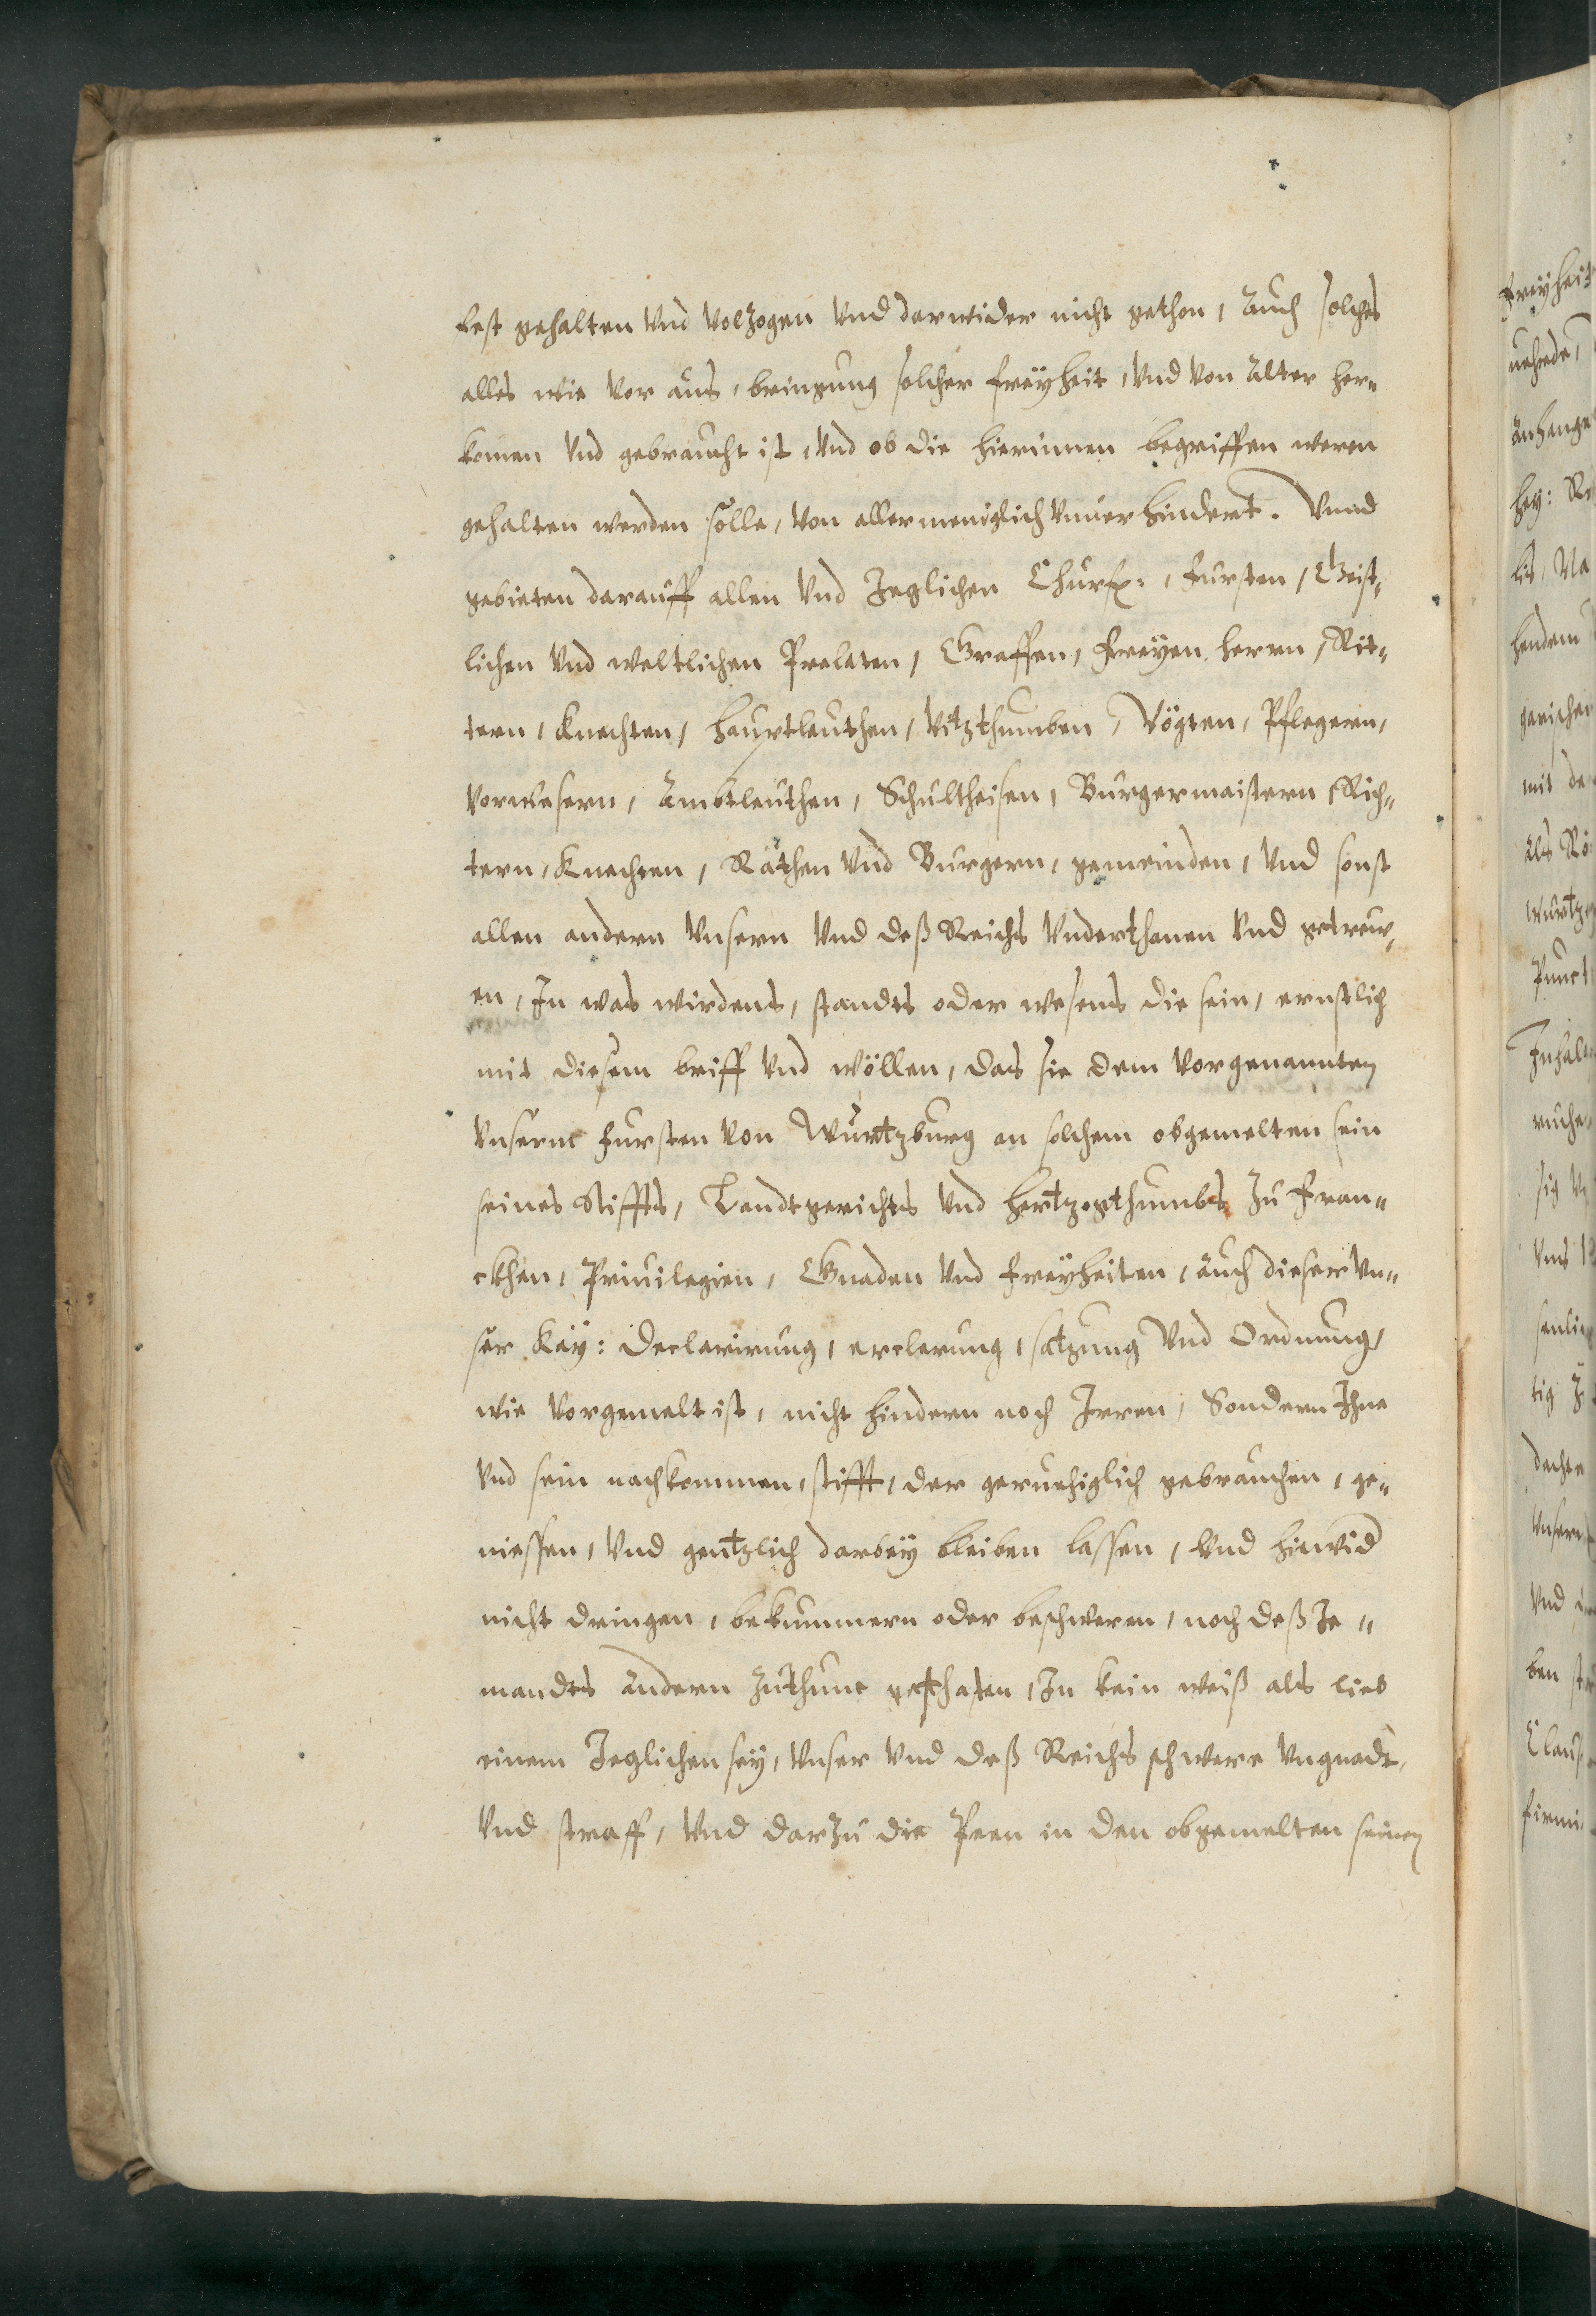 fest gehalten Vnd Volzogen Vnd darwider nicht gethon, Auch solches
alles wie Vor aus, bringung solcher freÿheit, Vnd Von Alter her¬
komen Vnd gebraucht ist, Vnd ob die hierinnen begriffen weren
gehalten werden solle, Von allermeniglich Vnuerhindert. Vnnd
gebieten darauff allen Vnd Jeglichen Churf:, Fursten, Geist¬
lichen Vnd weltlichen Prelaten, Graffen, Freÿen herrn, Rit¬
tern, Knechten, haubtleuthen, Vitzthumben, Vögten, Pflegern,
Vorwesern, Ambtleuthen, Schultheisen, Burgermaistern, Rich¬
tern, Knechten, Räthen Vnd Burgern, gemeinden, Vnd sonst
allen andern Vnsern Vnd deß Reichs Vnderthanen Vnd getrew¬
en, In was wirdens, standts oder wesens die sein, ernstlich
mit diesem briff Vnd wöllen, das sie dem Vorgenannten
Vnserm Fursten Von Wurtzburg an solchem obgemelten sein
seines Stiffts, Landtgerichts Vnd Hertzogthumbs zu Fran¬
ckhen, Priuilegien, Gnaden Vnd Freÿheiten, auch dieser Vn¬
ser Kaÿ: Declarirung, erclerung, satzung Vnd Ordnung,
wie Vorgemelt ist, nicht hindern noch Irren, Sondern Ihne
Vnd sein nachkommen, stifft, der geruehiglich gebrauchen, ge¬
niessen, Vnd gentzlich darbeÿ bleiben lassen, Vnd hiewid
nicht dringen, bekummern oder beschweren, noch deß Je¬
mandts andern zuthune gesthaten, In kein weiß als lieb
einem Jeglichen seÿ, Vnser Vnd deß Reichs schwere Vngnadt,
Vnd straff, Vnd darzu die Peen in den obgemelten seinen